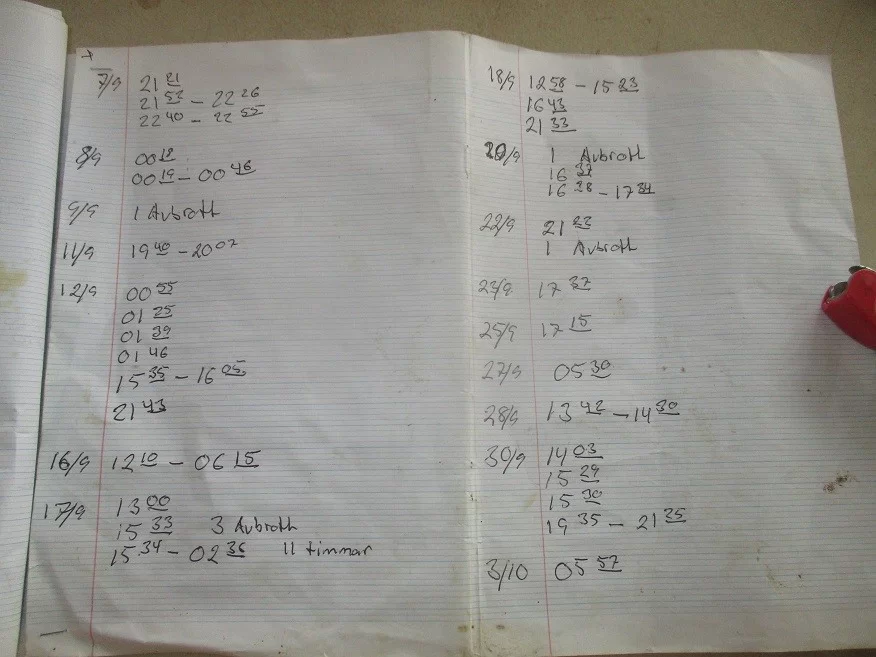 7/9 21 21
21 52 - 22 26
22 40 - 22 55
8/9 00 18
00 19 - 00 46
9/9 1 Avbrott
11/9 19 40 - 20 07
12/9 00 55
01 25
01 39
01 46
15 35 - 16 05
21 43
16/9 12 10 - 06 15
17/9 13 00
15 33 3 Avbrott
15 34 - 02 36 11 timmar
18/9 12 58 - 15 23
16 43
21 33
20/9 1 Avbrott
16 37
16 38 - 17 34
22/9 21 23
1 Avbrott
23/9 17 37
25/9 17 15
27/9 05 30
28/9 13 42 - 14 30
30/9 14 03
15 29
15 30
19 35 - 21 35
3/10 05 57